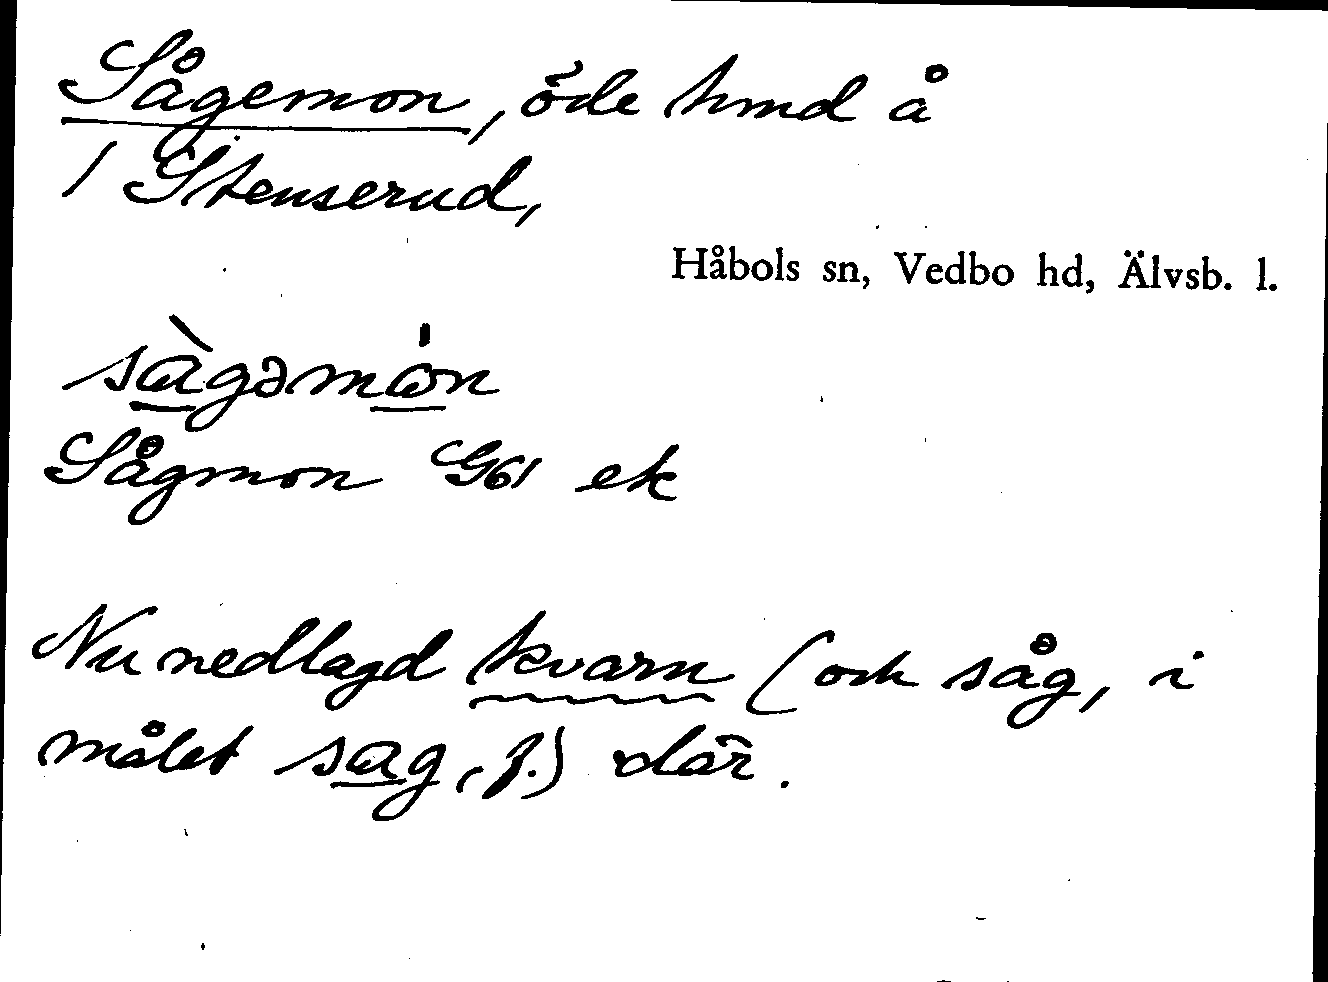 Sågemon, öde hmd å
1 Stenserud,
Håbols sn, Vedbo hd, Älvsb. l.
sàgəmón
Sågmon G61 ek
Nu nedlagd kvarn (och såg, i
målet sag, f.) där.